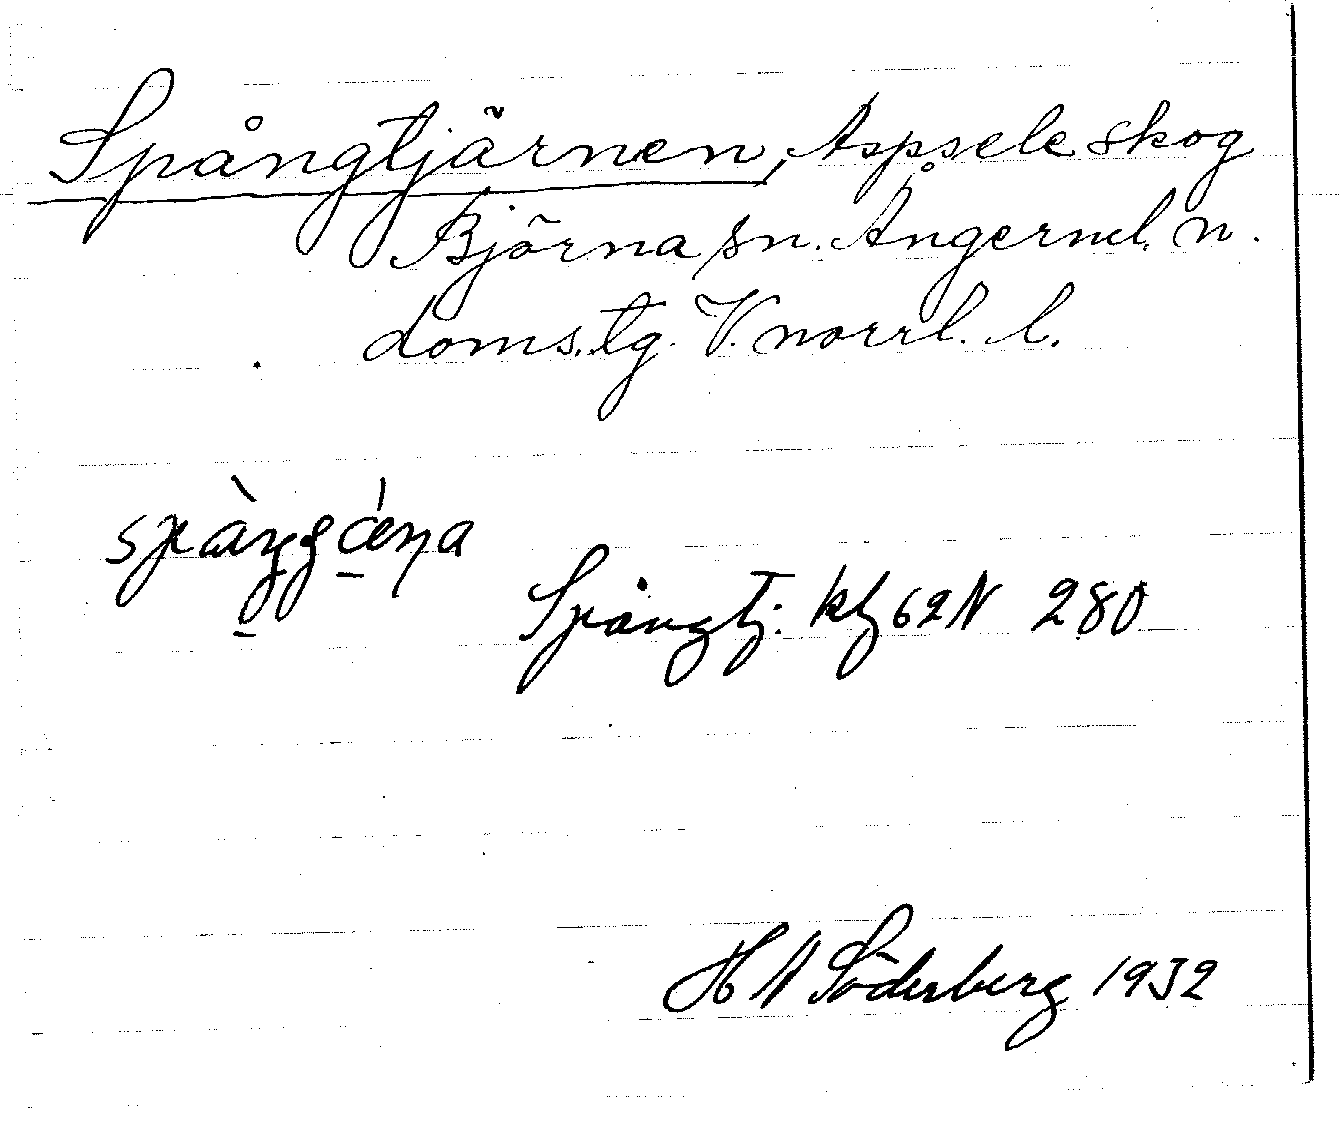 Spångtjärnen, Aspsele skog
Björna sn. Ångerml. n.
doms. tg. V. norrl. l.
Spångtj: kbl 62 N 280
H N Söderberg 1932